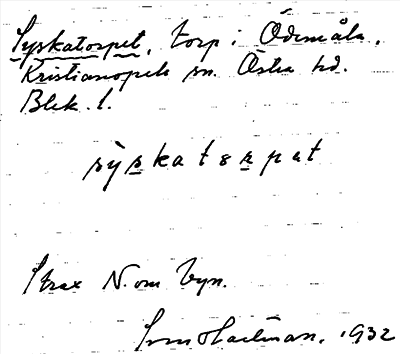 Syskatorpet, torp i Ödemåla,
Kristianopels sn. Östra hd.
Blek. l.
sỳskatɛrpat
Strax N. om byn.
Hartman. 1932